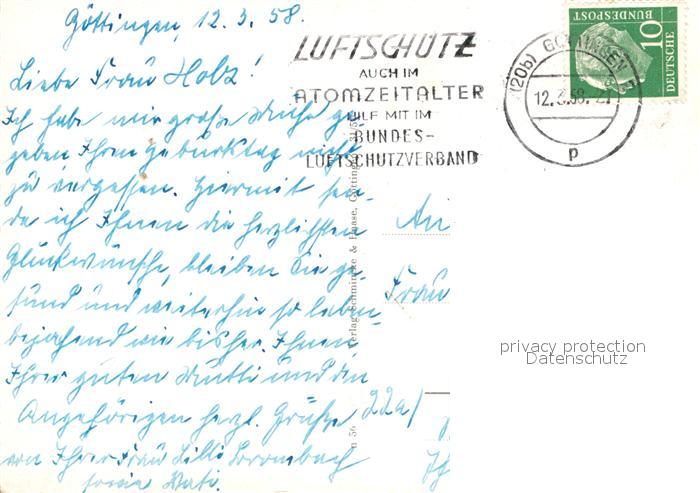 Göttingen, 12. 3. 58.
Liebe Frau Holz!
Ich habe mir große Mühe ge-
geben Ihren Geburtstag nicht
zu vergessen. Hiermit sen-
de ich Ihnen die herzlichsten
Glückwünsche, bleiben Sie ge-
sund und weiterhin so lebens-
bejahend wie bisher. Ihnen,
Ihrer guten Mutti und den
Angehörigen herzl. Grüße
von Ihrer Frau Lilli
sowie
LUFTSCHUTZ
AUCH IM
ATOMZEITALTER
HILF MIT IM
BUNDES-
LUFTSCHUTZVERBAND
(20b) GÖTTINGEN
12.3.58.-21
p
10
DEUTSCHE
BUNDESPOST
Verlag Schmincke & Haase, Göttingen
n 56
An
Frau
22a/
privacy protection
Datenschutz